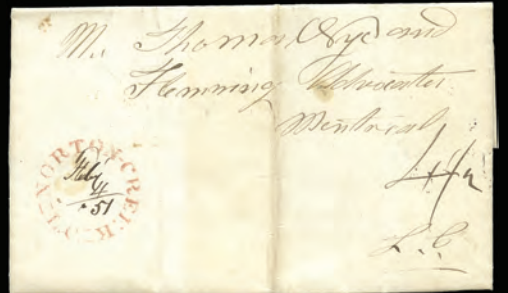 Mr. Thomas Nye and
Flemming Advocates
Montreal
4½
L.C.
NORTON-CREEK L.C.
Feby
4
51